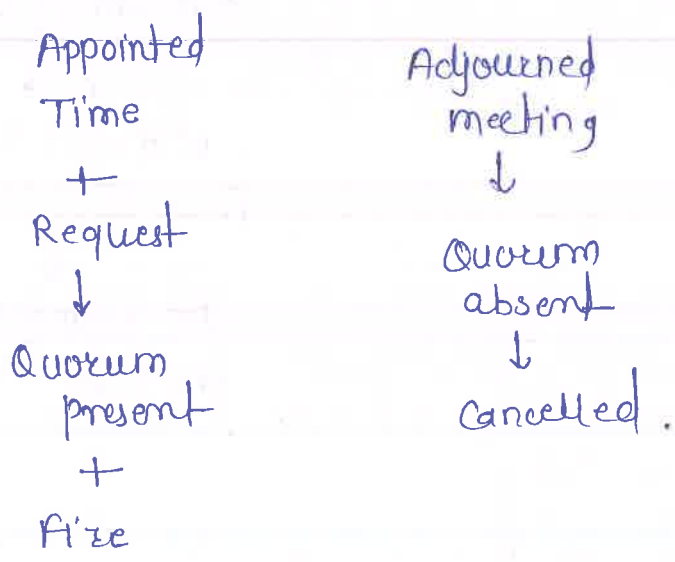 Appointed
Time
+
Request
↓
Quorum
present
+
Fire
Adjourned
meeting
↓
Quorum
absent
↓
Cancelled.